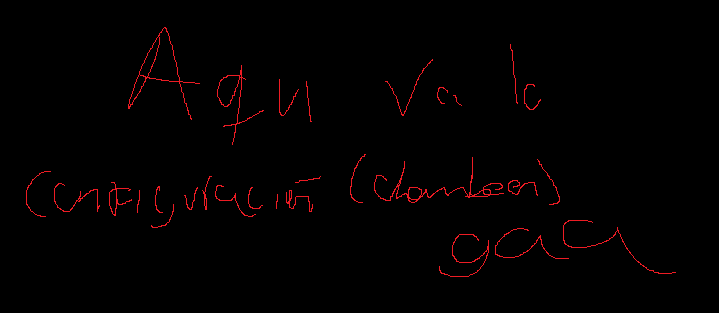 Aqui va la
configuración (chambeen)
gaa